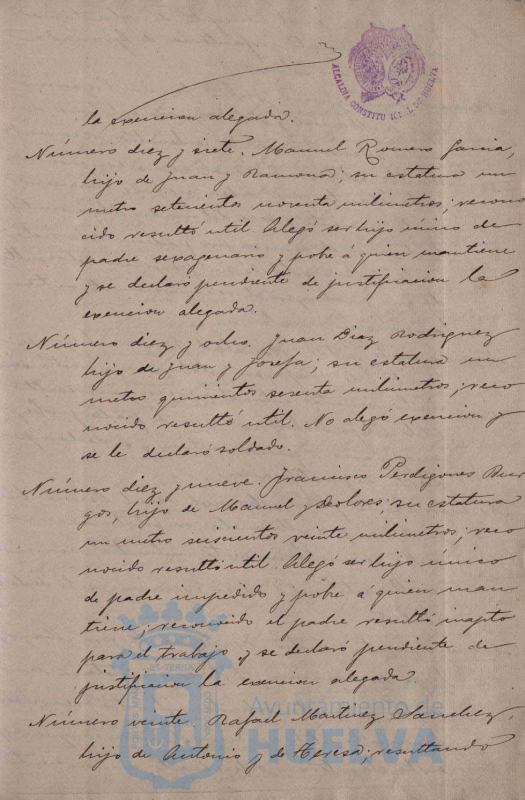 ALCALDIA CONSTITUCIONAL DE HUELVA
la exencion alegada.
Número diez y siete. Manuel Romero Garcia,
hijo de Juan y Ramona; su estatura un
metro setecientos noventa milimetros; recono
cido resultó util. Alegó ser hijo único de
padre sexagenario y pobre á quien mantiene
y se declaró pendiente de justificacion la
exencion alegada.
Número diez y ocho. Juan Diaz Rodriguez
hijo de Juan y Josefa; su estatura un
metro quinientos sesenta milimetros; reco
nocido resultó util. No alegó exencion y
se le declaró soldado.
Número diez y nueve. Francisco Perdigones Bur
gos, hijo de Manuel y Dolores; su estatura
un metro seiscientos veinte milimetros; reco
nocido resultó util. Alegó ser hijo único
de padre impedido y pobre á quien man
tiene; reconocido el padre resultó inapto
para el trabajo y se declaró pendiente de
justificacion la exencion alegada.
Número veinte. Rafael Martinez Sanchez,
hijo de Antonio y de Teresa; resultando
Ayuntamiento de
HUELVA